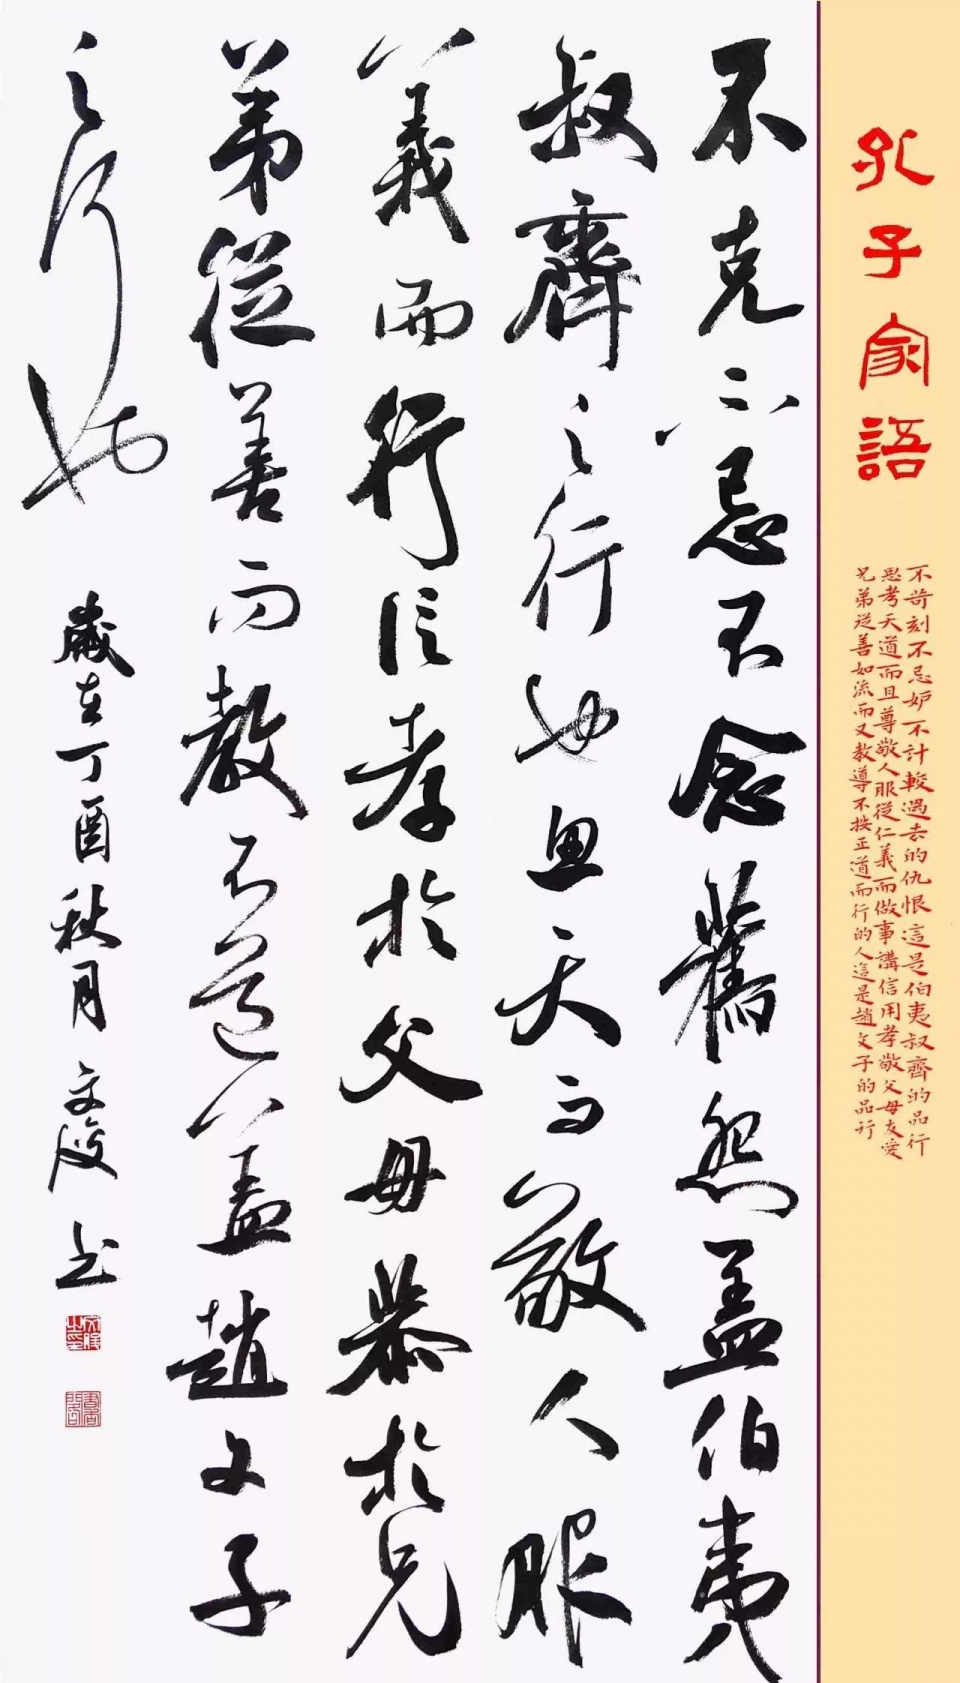 孔子家語
不苛刻不忌妒不計較過去的仇恨這是伯夷叔齊的品行
思考天道而且尊敬人服從仁義而做事講信用孝敬父母友愛
兄弟從善如流而又教導不按正道而行的人這是趙文子的品行
不克不忌不念舊怨盖伯夷
叔齊之行也思天而敬人服
義而行信孝於父母恭於兄
弟從善而教不道盖趙文子
之行也
歲在丁酉秋月文書